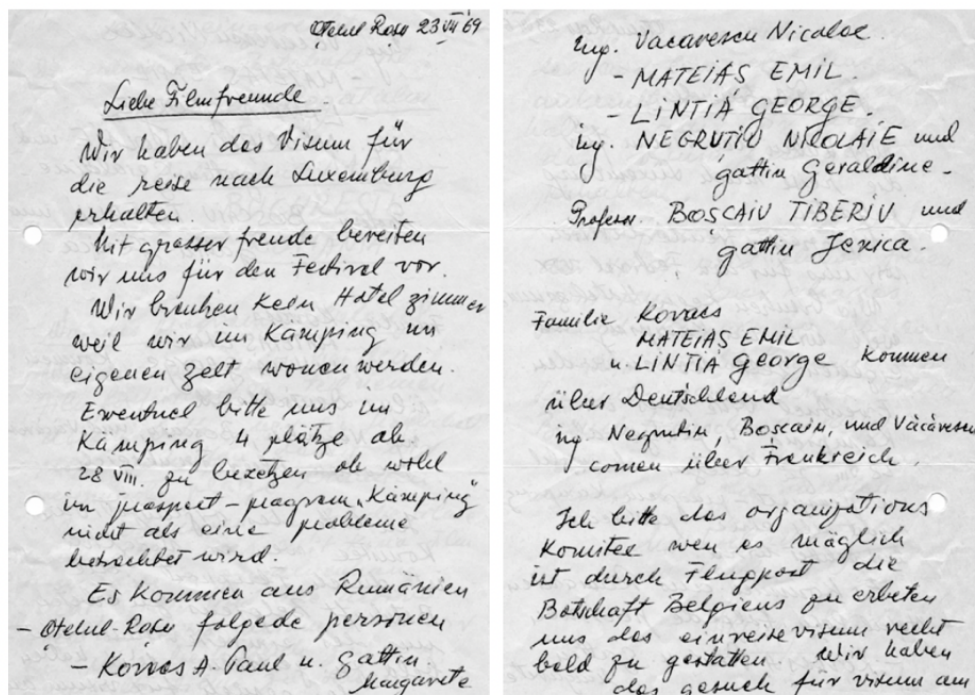 Oțelul Roșu 23 VII 69
Liebe Filmfreunde
Wir haben das Visum für
die reise nach Luxemburg
erhalten.
Mit grosser freude bereiten
wir uns für den Festival vor.
Wir brauken kein Hotel zimmer
weil wir im Kamping im
eigenen zelt wonen werden.
Eventuel bitte uns im
Kamping 4 plätze ab
28 VIII. zu besetzen ob wohl
im prospect - program „Kamping"
nicht als eine probleme
betrachtet wird.
Es kommen aus Rumänien
- Oțelul-Roșu folgede personen
- Kovacs A. Paul u. gattin
Margarete
ing. Vacarescu Nicolae.
- MATEIAS EMIL.
- LINTIA GEORGE.
ing. NEGRUTIU NICOLAIE und
gattin Geraldine.
Profesor. BOSCAIU TIBERIU und
gattin Jexica.
Familie Kovacs
MATEIAS EMIL
u. LINTIA George kommen
über Deutschland
ing. Negrutiu, Boscaiu, und Văcărescu
comen über Frankreich.
Ich bitte das organizations
Komitee wen es mäglich
ist durch Flugpost die
Botschaft Belgiens zu erbeten
uns das einreise visum recht
bald zu gestatten. Wir haben
das gesuch für visum am